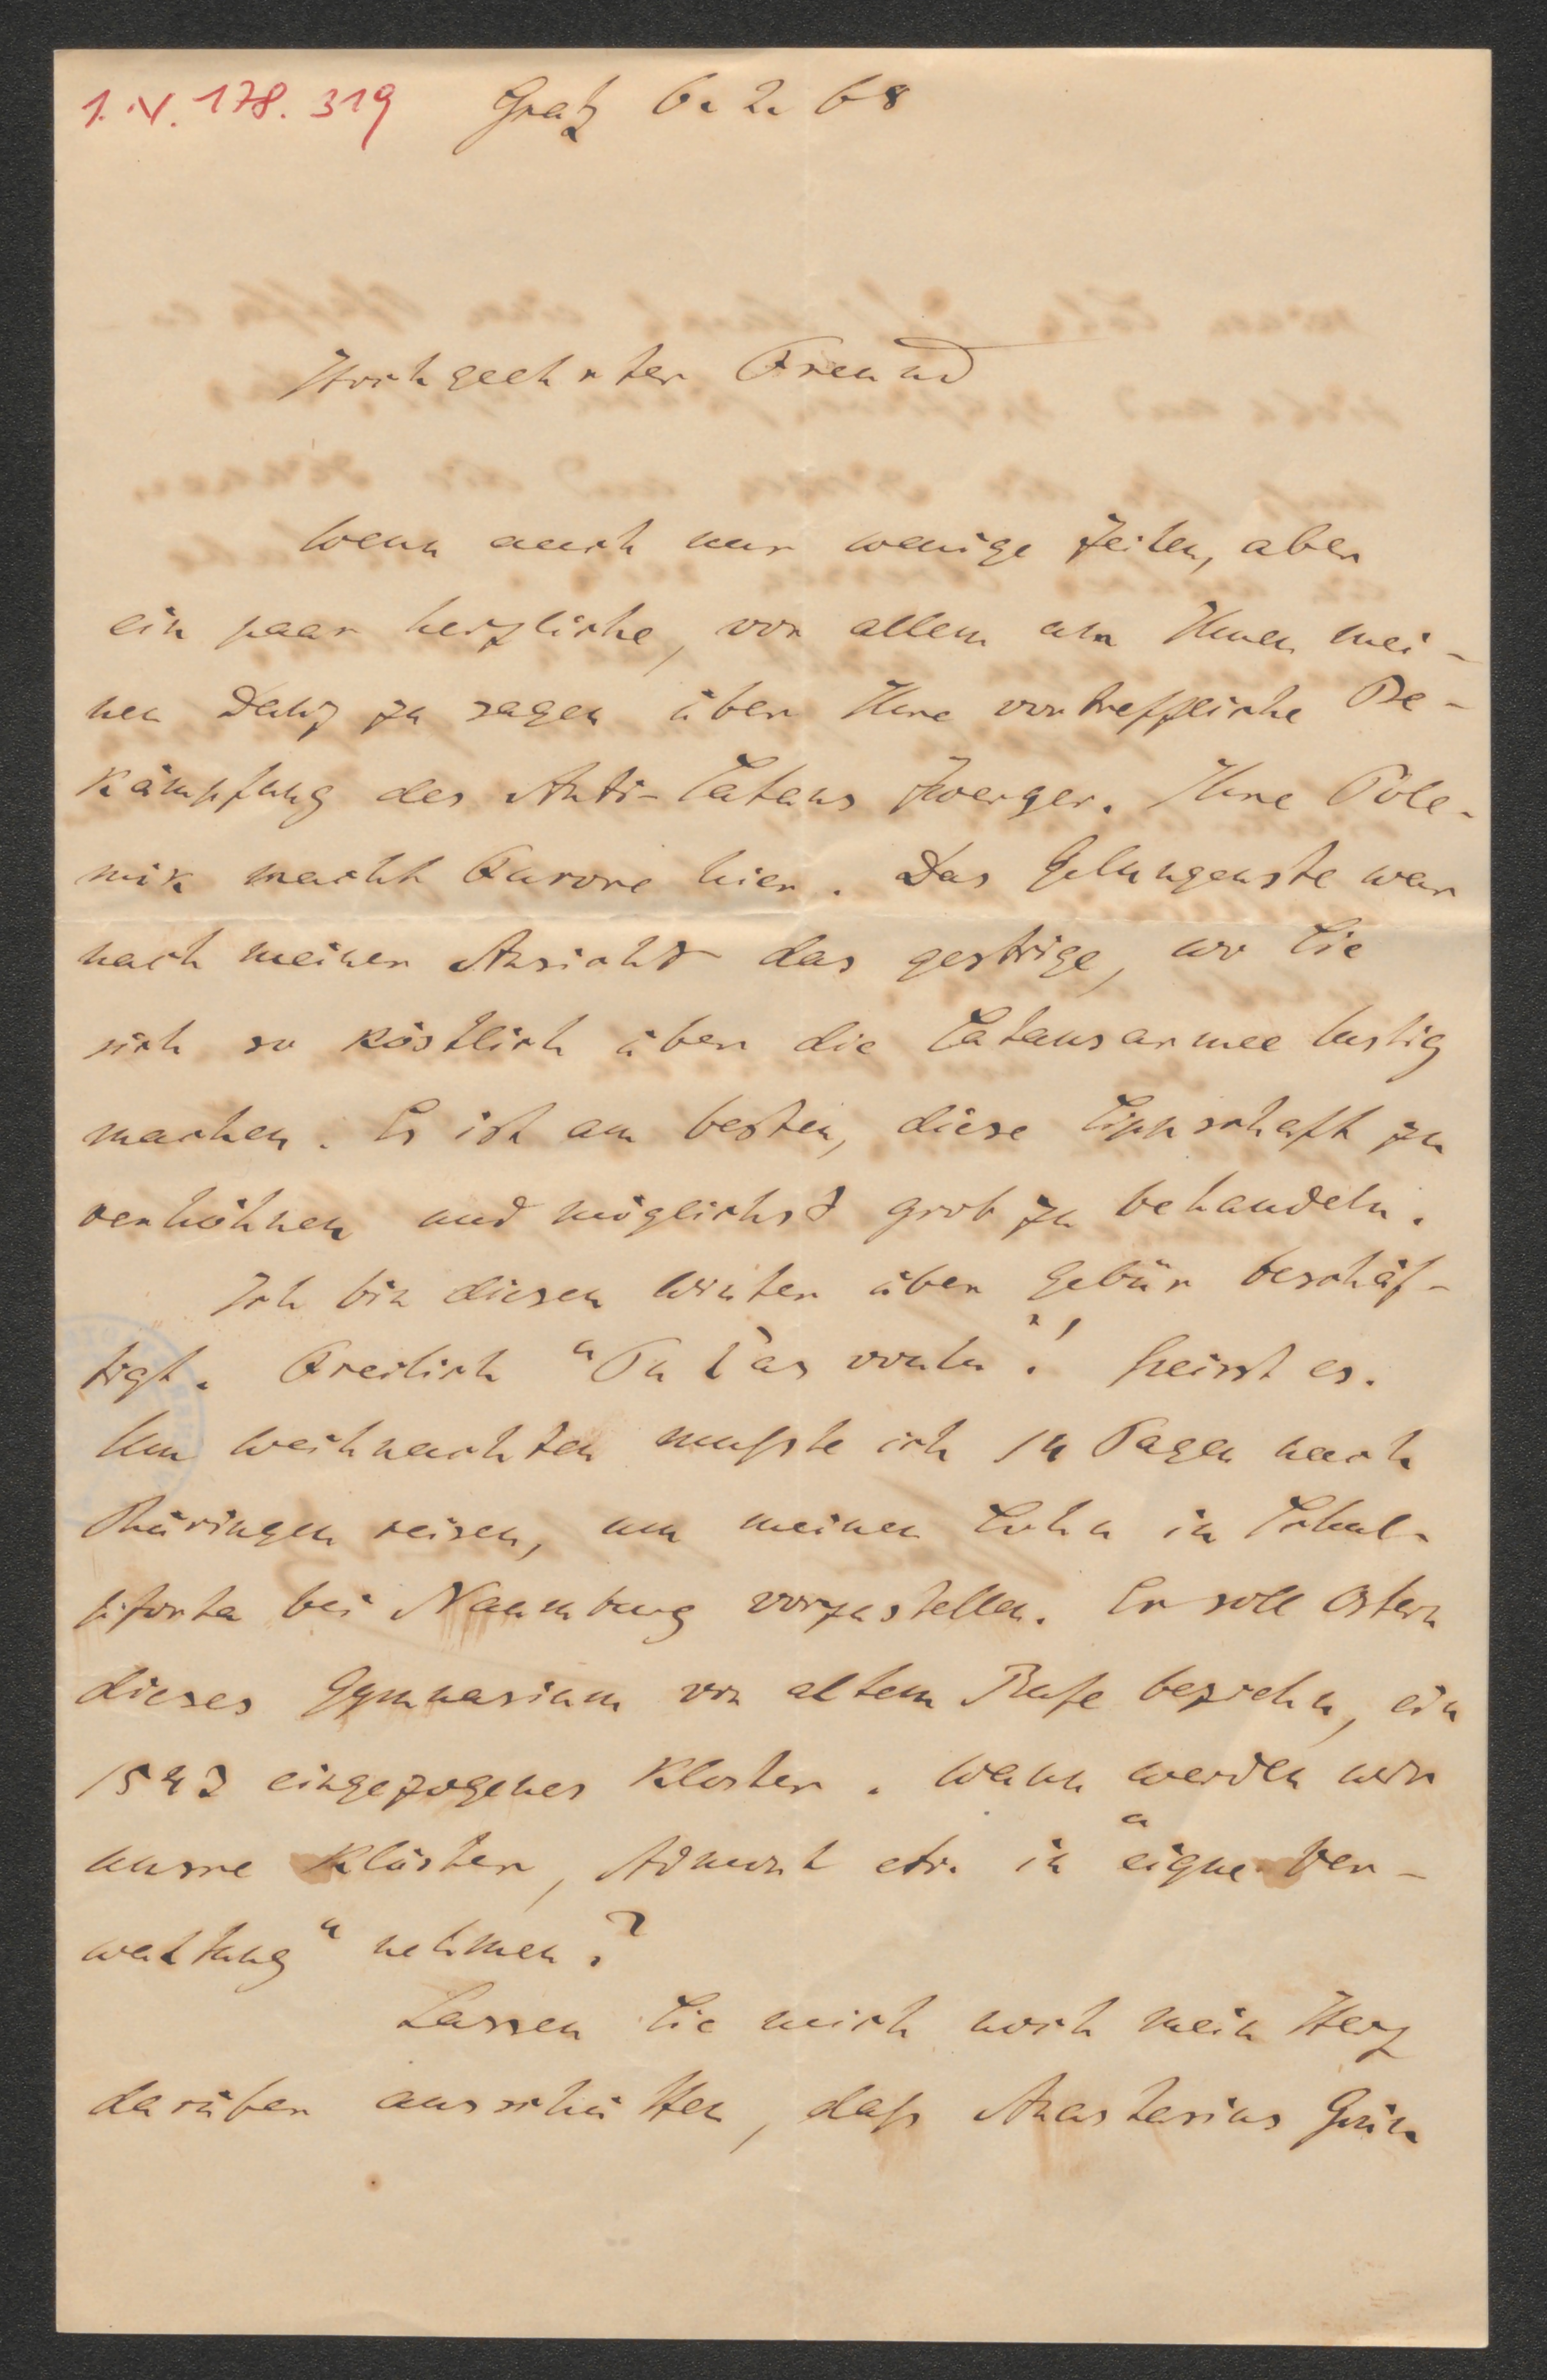 1. N. 178. 319 Gratz 6. 2. 68
Hochgeehrter Freund
Wenn auch nur wenige Zeilen, aber
ein paar herzliche, vor allem um Ihnen mei-
nen Dank zu sagen über Ihre vortreffliche Be-
kämpfung des Anti-Satans Zwerger. Ihre Pole-
mik macht Furore hier. Das Gelungenste war
nach meiner Ansicht das gestrige, wo Sie
sich so köstlich über die Satansarmee lustig
machen. Es ist am besten, diese Sippschaft zu
verhöhnen und möglichst grob zu behandeln.
Ich bin diesen Winter über Gebür beschäf-
tigt. Freilich "Tu l'as voulu!" heisst es.
Um Weihnachten mußte ich 14 Tagen nach
Thüringen reisen, um meinen Sohn in Schul-
pforta bei Naumburg vorzustellen. Er soll Ostern
dieses Gymnasium von altem Rufe beziehn, ein
1543 eingezogenes Kloster. Wann werden wir
unsre Klöster, Admont etc. in "eigne Ver-
waltung" nehmen?
Lassen Sie mich noch mein Herz
darüber ausschütten, daß Anastasius Grün